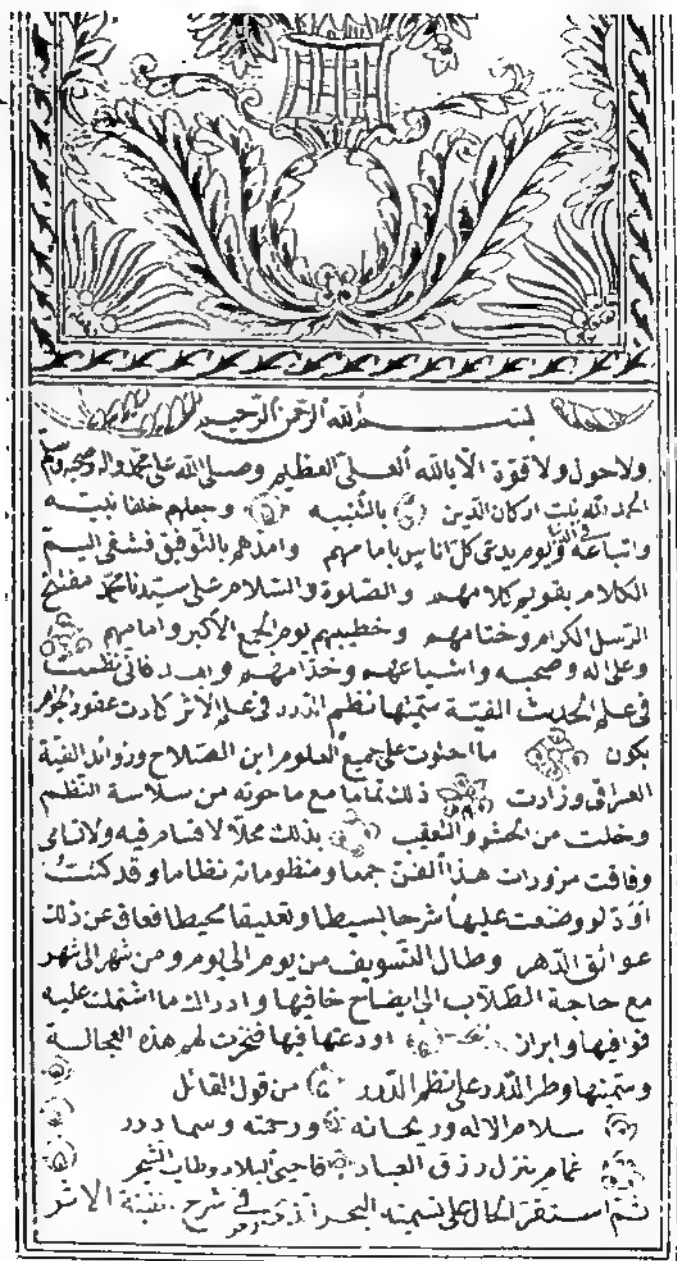 بسم الله الرحمن الرحيم
ولا حول ولا قوة الا بالله العلي العظيم وصلى الله على محمد واله وصحبه وسلم
الحمد لله ثبت اركان الدين بالتنبيه وجعلهم خلفا نبيه
واتباعه في الدنيا ويوم يدعى كل اناس بامامهم وامدهم بالتوفيق فشفى اليم
الكلام بقويم كلامهم والصلوة والسلام على سيدنا محمد مفتتح
الرسل الكرام وختامهم وخطيبهم يوم الجمع الأكبر وامامهم
وعلى اله وصحبه واشياعهم وخدامهم وبعد فاني نظمت
في علم الحديث الفية سميتها نظم الدرر في علم الاثر كادت عقود الجوهر
بكون ما احتوت على جميع العلوم ابن الصلاح وزوائد الفية
العراقي وزادت ذلك تماما مع ما حوته من سلاسة النظم
وخلت من الحشو والتعقيب بذلك محلا لاقسام فيه ولا تنامى
وفاقت مزورات هذا الفن جمعا ومنظوماته نظاما وقد كنت
اود لو وضعت عليها شرحا بسيطا وتعليقا محيطا فعاق عن ذلك
عوائق الدهر وطال التسويف من يوم الى يوم ومن شهر الى شهر
مع حاجة الطلاب الى ايضاح خافيها وادراك ما اشتملت عليه
قوافيها وابراز اودعتها فيها فنجزت لهم هذه العجالة
وسميتها قطر الدرر على نظم الدرر من قول القائل
سلام الاله وريحانه ورحمته وسما درر
غمام منزل رزق العباد فاحيى البلاد وطاب الشجر
ثم استقر الحال على تسميته البحر الذي زخر في شرح الفية الاثر